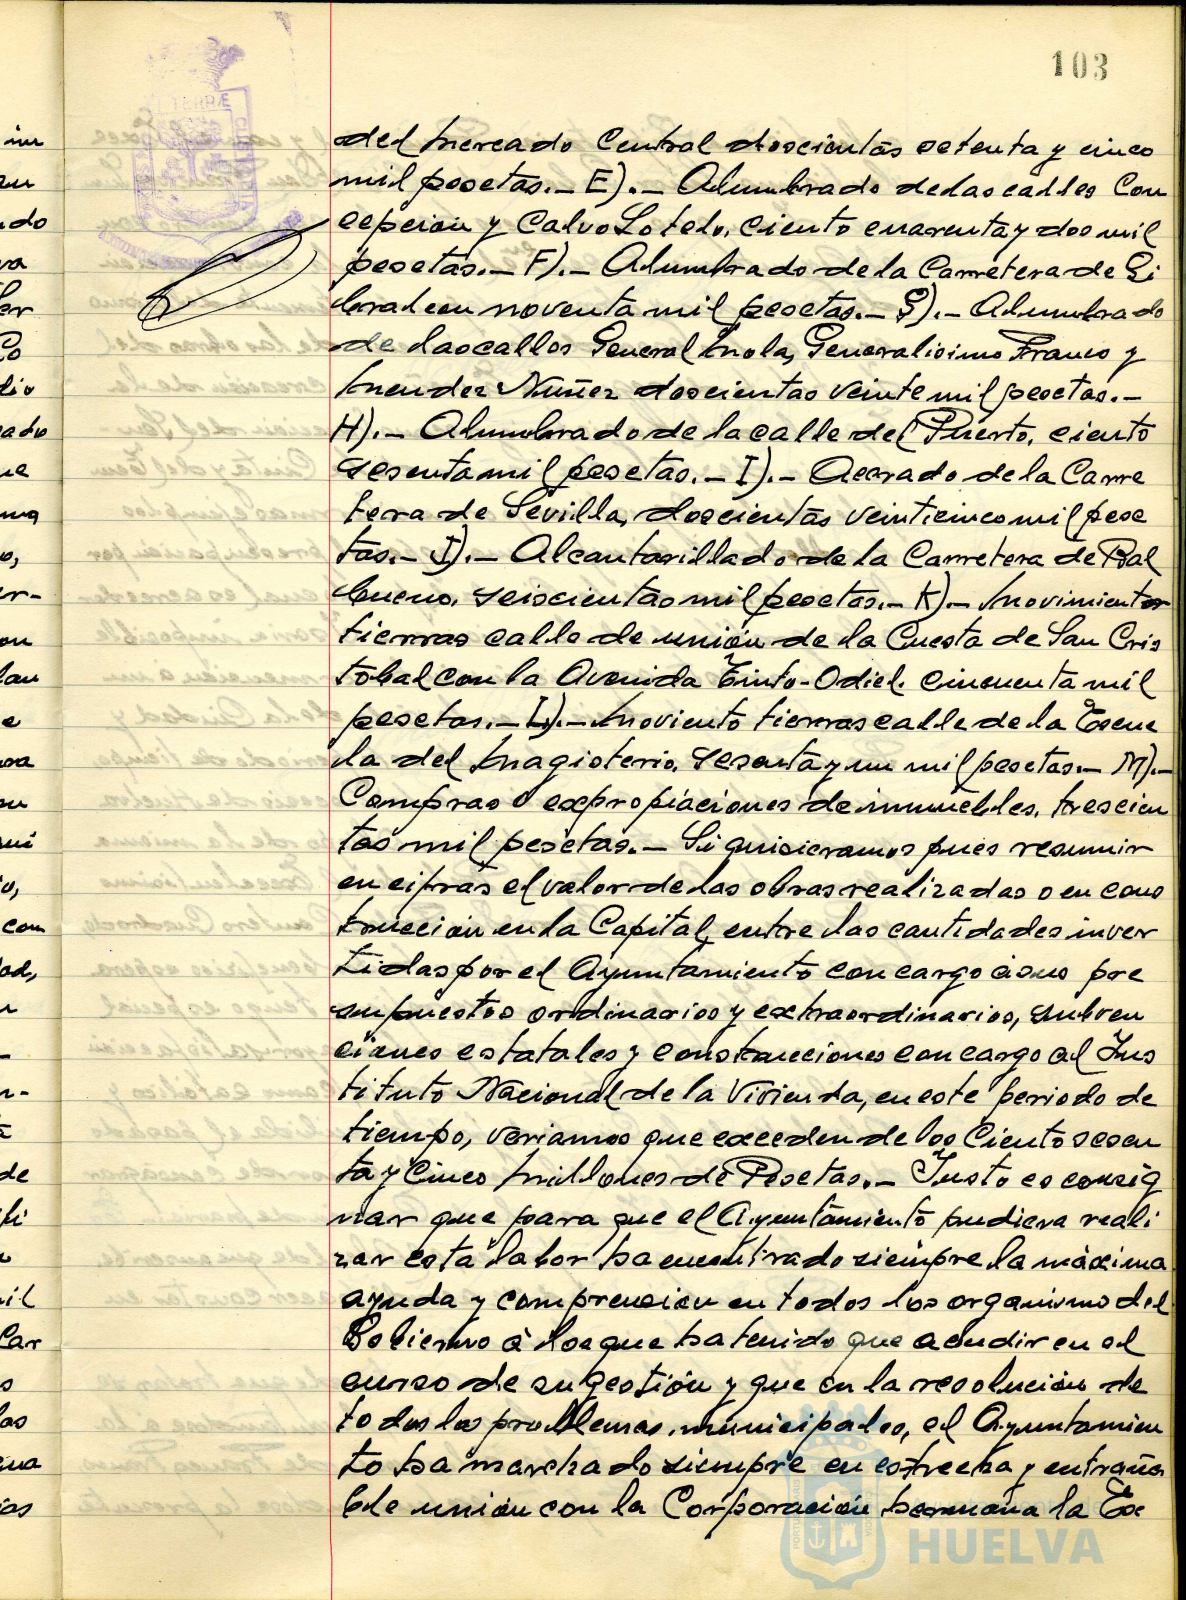 103
del Mercado Central doscientas setenta y cinco
mil pesetas.- E).- Alumbrado de las calles Con
cepción y Calvo Sotelo, ciento cuarenta y dos mil
pesetas.- F).- Alumbrado de la Carretera de Gi
braleon noventa mil pesetas.- G).- Alumbrado
de las calles General Mola, Generalisimo Franco y
Mendez Nuñez doscientas veinte mil pesetas.-
H).- Alumbrado de la calle del Puerto, ciento
sesenta mil pesetas.- I).- Acerado de la Carre
tera de Sevilla, doscientas veinticinco mil pese
tas.- J).- Alcantarillado de la Carretera de Bal
bueno, seiscientas mil pesetas.- K).- Movimiento
tierras calle de unión de la Cuesta de San Cris
tobal con la Avenida Tinto-Odiel. cincuenta mil
pesetas.- L).- Moviento tierras calle de la Escue
la del Magisterio, sesenta y un mil pesetas.- M).-
Compras o expropiaciones de inmuebles, trescien
tas mil pesetas.- Si quisieramos pues resumir
en cifras el valor de las obras realizadas o en cons
trucción en la Capital, entre las cantidades inver
tidas por el Ayuntamiento con cargo à sus pre
supuestos ordinarios y extraordinarios, subven
ciones estatales y construcciones con cargo al Ins
tituto Nacional de la Vivienda, en este periodo de
tiempo, veriamos que exceden de los Ciento sesen
ta y Cinco Millones de Pesetas.- Justo es consig
nar que para que el Ayuntamiento pudiera reali
zar esta labor ha encontrado siempre la máxima
ayuda y comprension en todos los organismo del
Gobierno à los que ha tenido que acudir en el
curso de su gestión y que en la resolución de
todos los problemas municipales, el Ayuntamien
to ha marchado siempre en estrecha y entraña
ble unión con la Corporación hermana la Ex
HUELVA